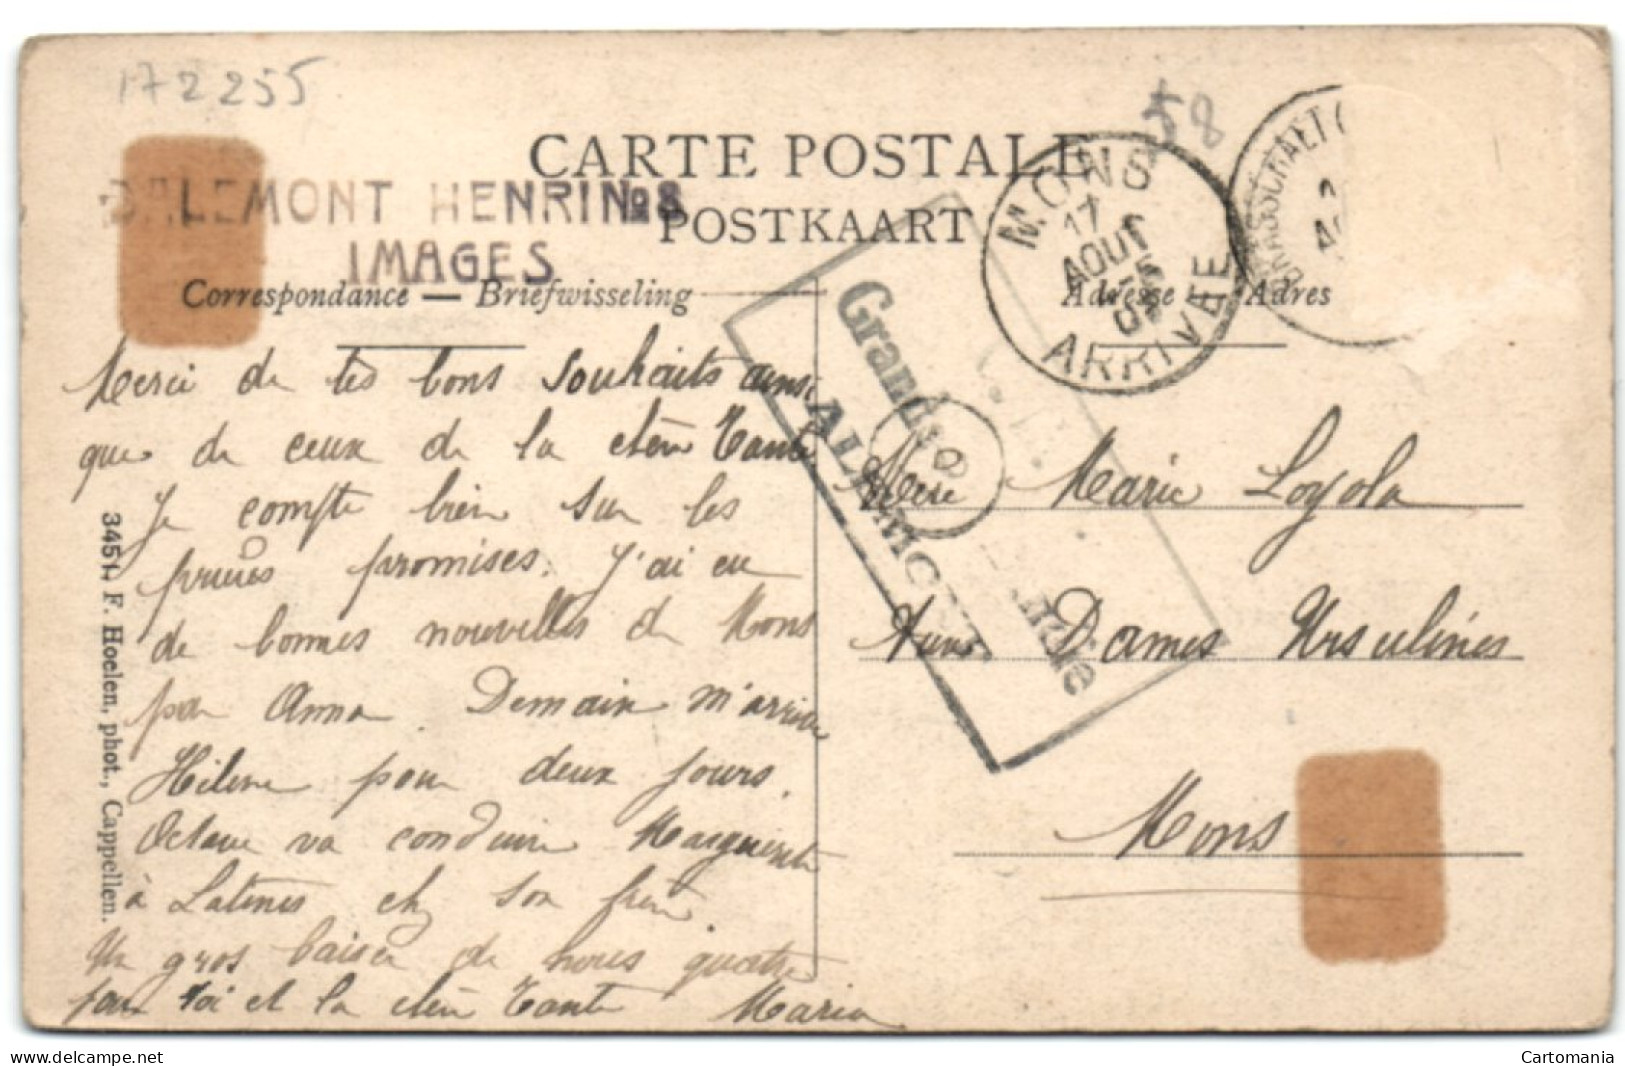 172255
58
CARTE POSTALE
DALEMONT HENRI No 8
POSTKAART
IMAGES
Correspondance — Briefwisseling
Adresse — Adres
MONS
17
AOUT
ARRIVÉE
BRASSCHAET (
Merci de tes bons souhaits ainsi
que de ceux de la chère Tante
Je compte bien sur les
prières promises. J'ai eu
de bonnes nouvelles de Mons
par Anna. Demain m'arrive
Hélène pour deux jours.
Octave va conduire Marguerite
à Latinis chez son frère.
Un gros baiser de nous quatre
pour toi et la chère Tante Maria
Mère Marie Loyola
Aux Dames Ursulines
Mons
3451. F. Hoelen, phot., Cappellen.
Cartomania